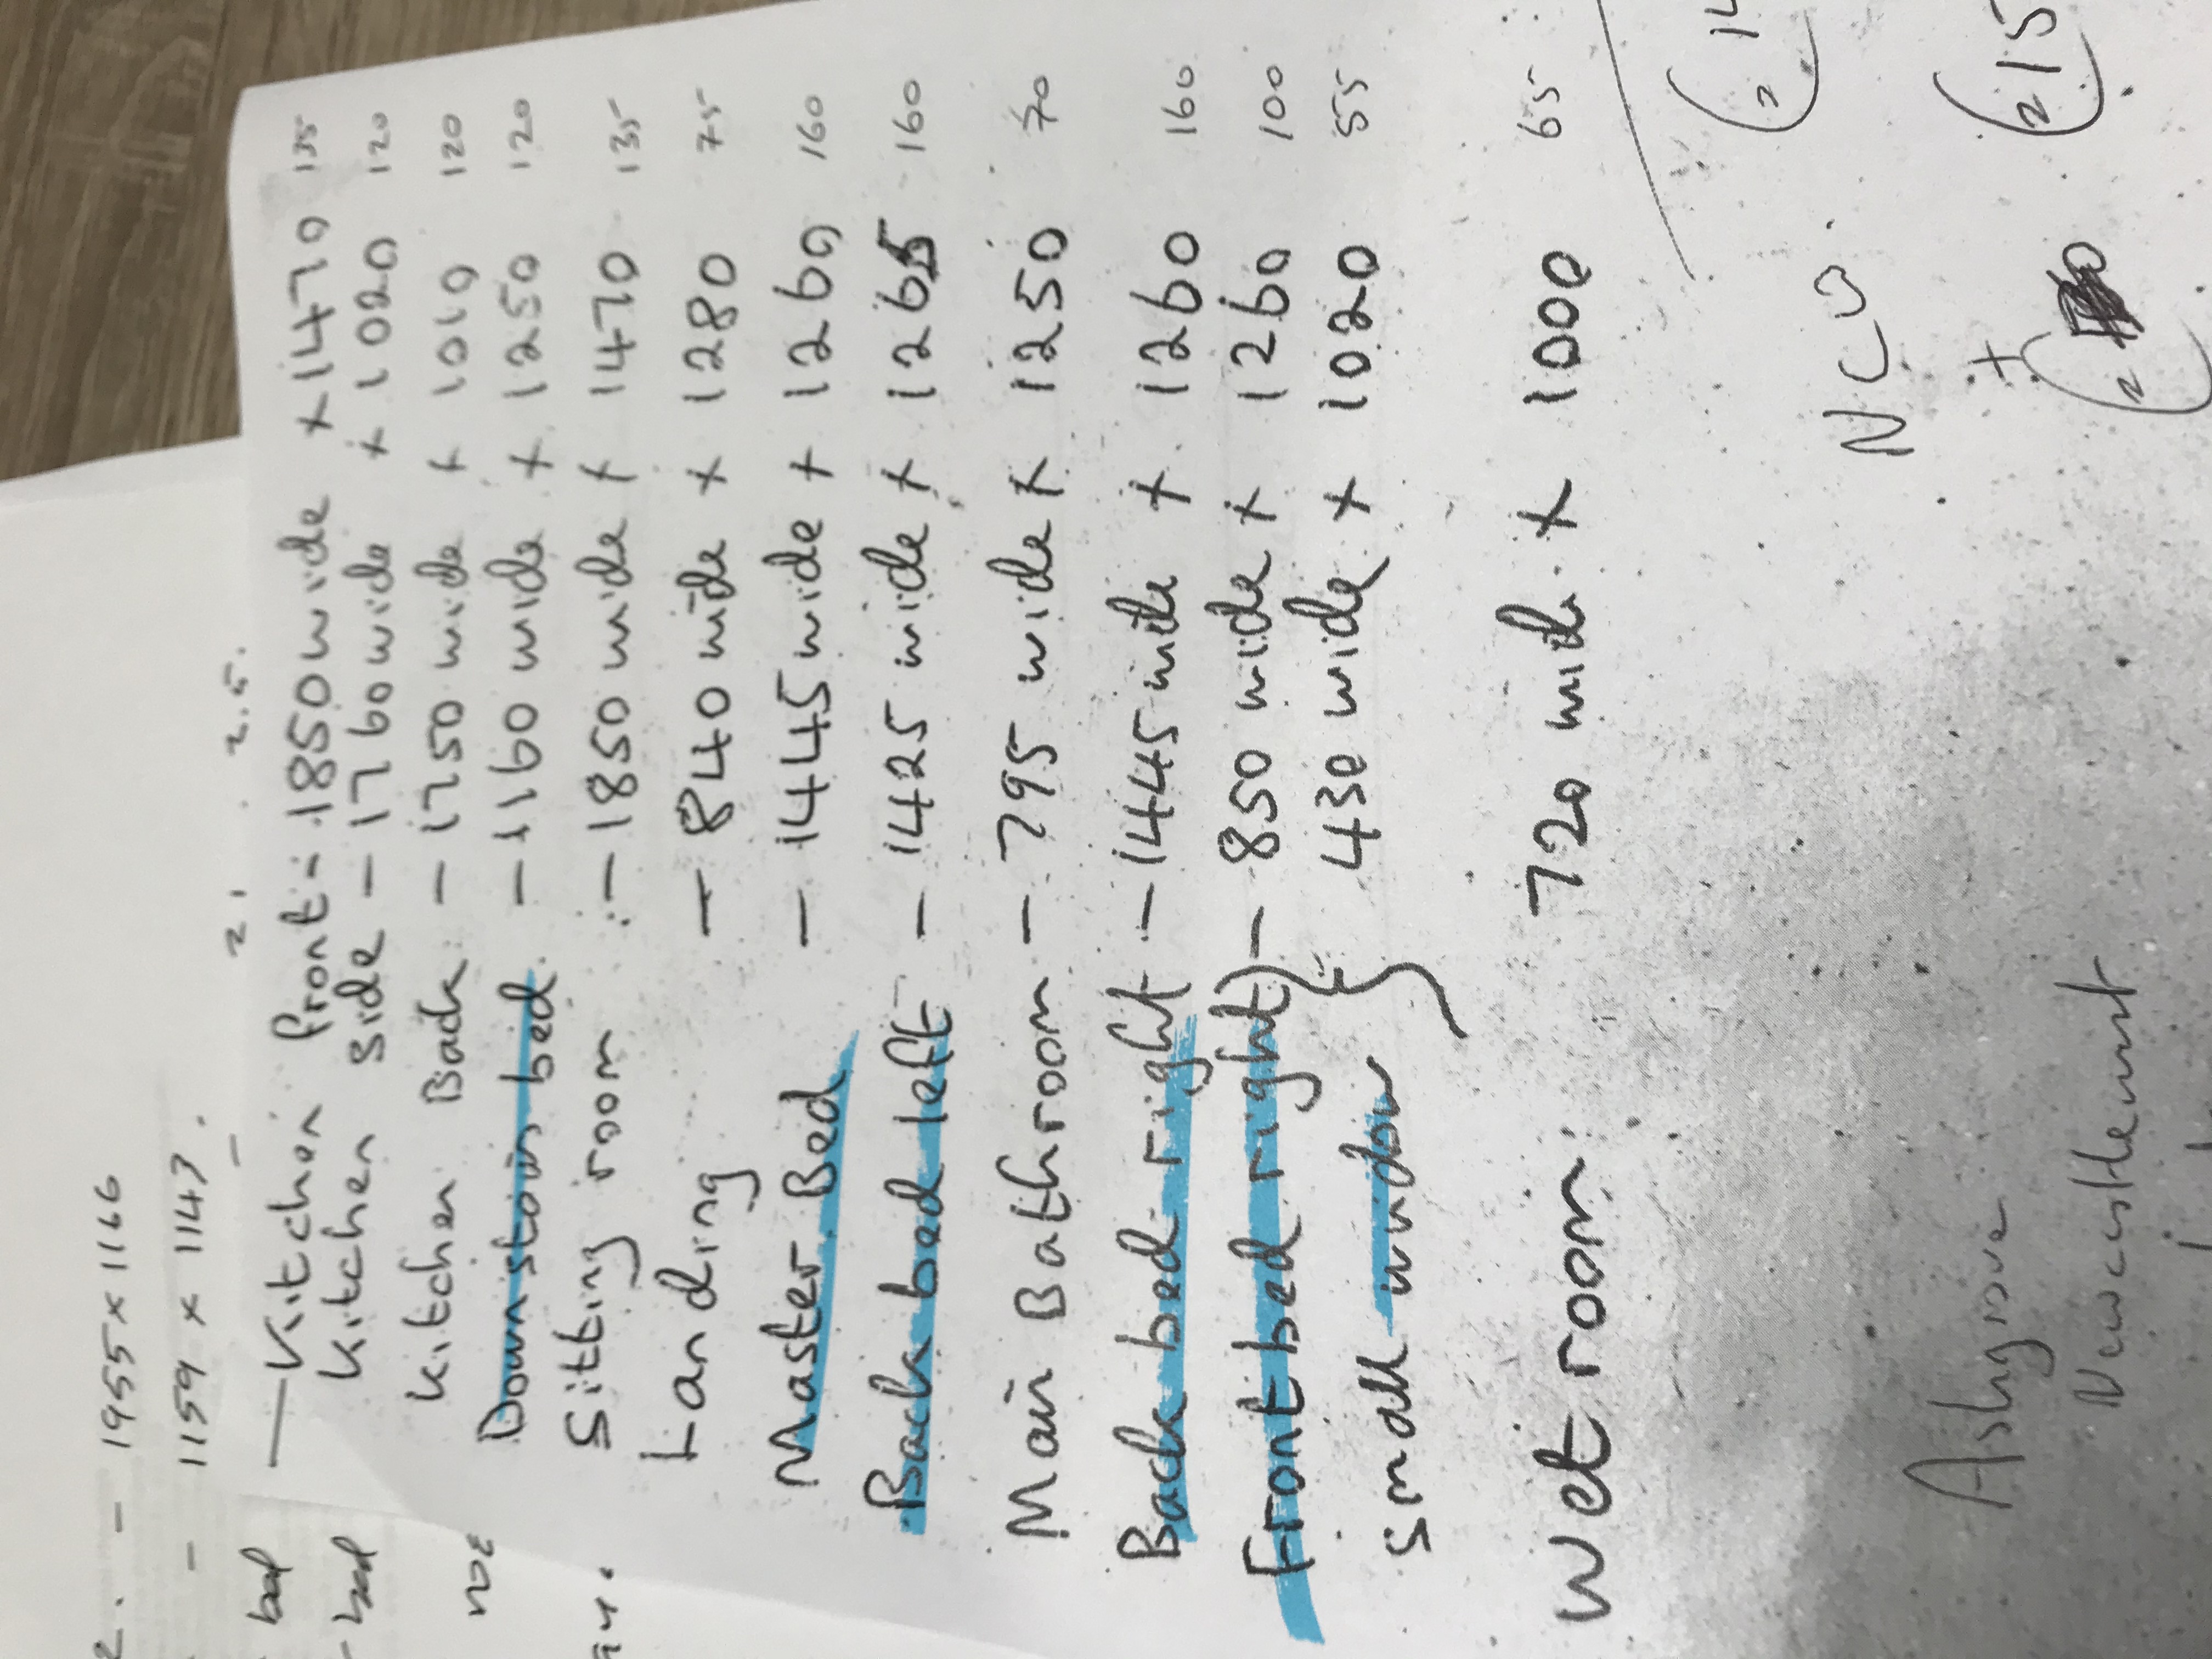 2. - 1955 x 1166
- 1159 x 1147.
bed
bed
21 2.5.
- Kitchen front - 1850 wide x 1470 135
Kitchen side - 1760 wide x 1020 120
Kitchen Back - 1750 wide x 1010 120
Downstairs bed - 1160 wide x 1250 120
Sitting room :- 1850 wide x 1470 135
Landing - 840 wide x 1280 75
Master Bed - 1445 wide x 1260 160
Back bed left - 1425 wide x 1265 160
Main Bathroom - 795 wide x 1250 70
Back bed right - 1445 wide x 1260 160
Front bed right - 850 wide x 1260 100
small window 430 wide x 1020 55
Wet room. 720 wide x 1000 65
Ashgrove
Newcastlewest